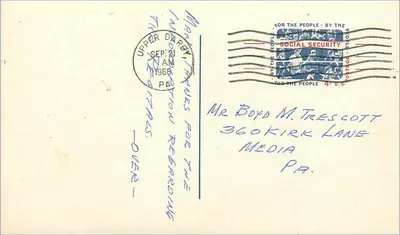 MANY THANKS FOR THE
INVITATION REGARDING
THE RECITALS.
—OVER—
UPPER DARBY,
SEP 21
AM
1966
PA.
FOR THE PEOPLE - BY THE
SOCIAL SECURITY
FOR THE PEOPLE
4¢ U.S. POSTAGE
MR BOYD M. TRESCOTT
360 KIRK LANE
MEDIA
PA.